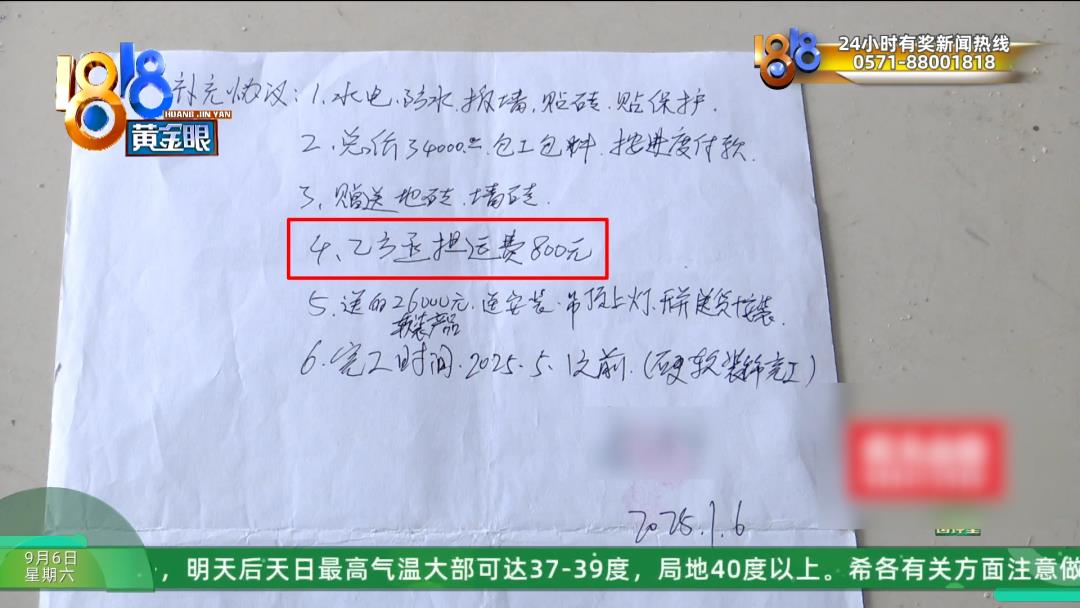 1818
HUANG JIN YAN
黄金眼
1818
24小时有奖新闻热线
0571-88001818
补充协议:1、水电、防水、拆墙、贴砖、贴保护.
2、总价34000.00.包工包料.按进度付款.
3、赠送地砖、墙砖.
4、乙方承担运费800元
5、送的26000元.送安装.吊顶上灯.
软装产品
6、完工时间.2025.5.
2025.1.6
9月6日
星期六
,明天后天日最高气温大部可达37-39度,局地40度以上。希各有关方面注意做